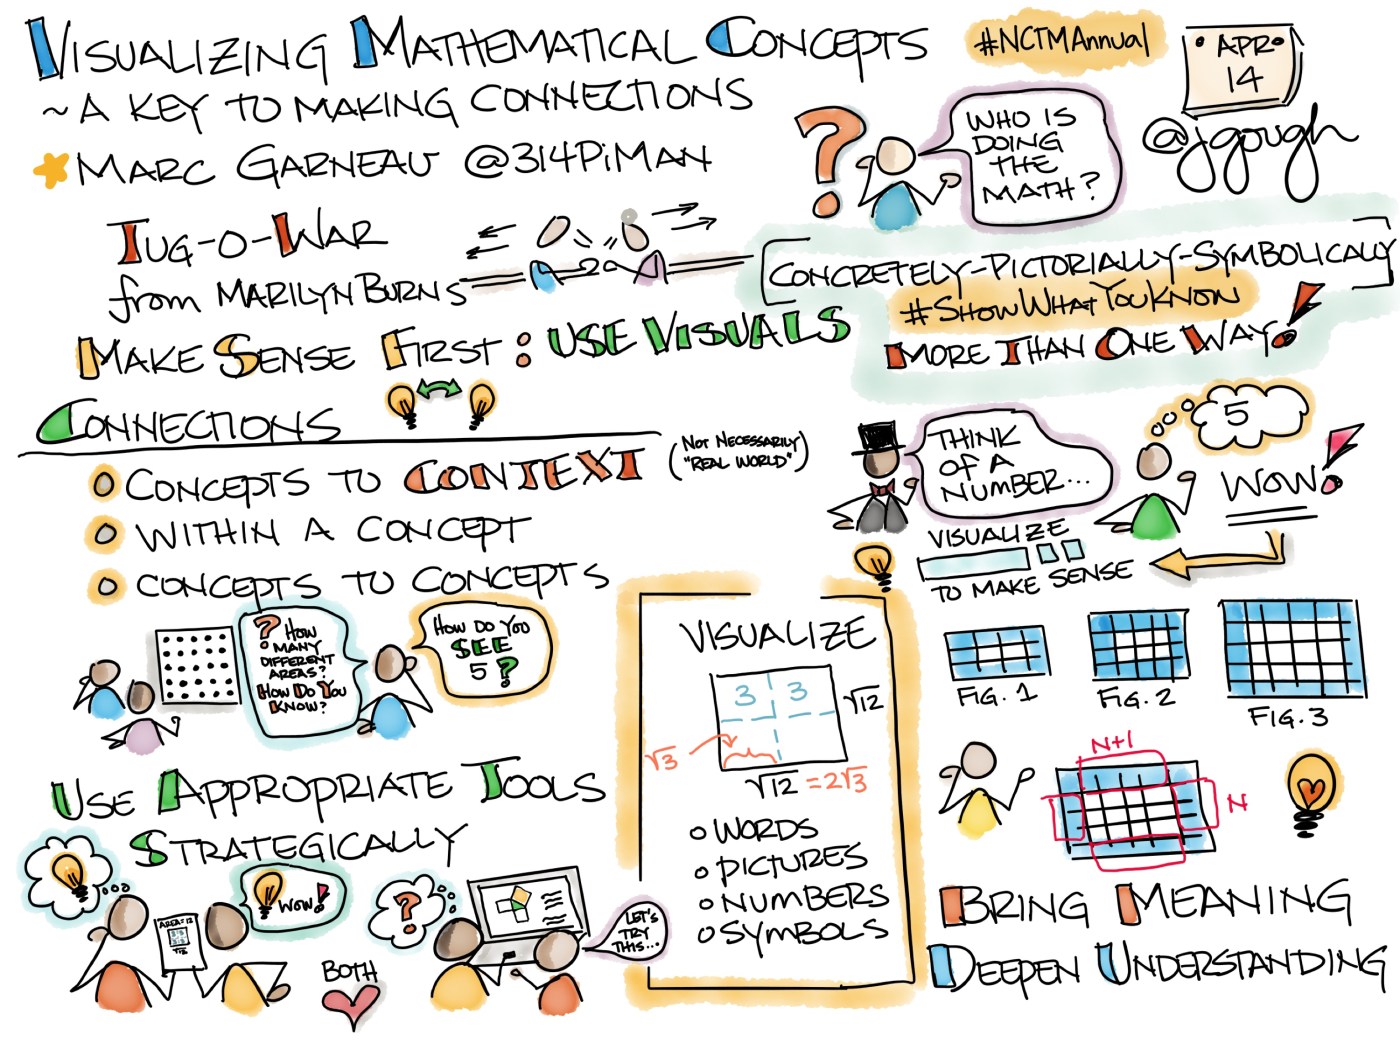 VISUALIZING MATHEMATICAL CONCEPTS
~ A KEY TO MAKING CONNECTIONS
MARC GARNEAU @314PIMAN
#NCTMAnnual
APR
14
@jgough
WHO IS
DOING
THE
MATH?
TUG-O-WAR
from MARILYN BURNS
CONCRETELY-PICTORIALLY-SYMBOLICALLY
#SHOWWHATYOUKNOW
MORE THAN ONE WAY!
MAKE SENSE FIRST: USE VISUALS
CONNECTIONS
CONCEPTS TO CONTEXT
(NOT NECESSARILY
"REAL WORLD")
WITHIN A CONCEPT
CONCEPTS TO CONCEPTS
THINK
OF A
NUMBER...
5
WOW!
VISUALIZE
TO MAKE SENSE
? HOW
MANY
DIFFERENT
AREAS?
HOW DO YOU
KNOW?
HOW DO YOU
SEE
5?
FIG. 1
FIG. 2
FIG. 3
N+1
N
USE APPROPRIATE TOOLS
STRATEGICALLY
AREA=12
√12
WOW!
BOTH
?
LET'S
TRY
THIS...
VISUALIZE
3 3
√12
√3
√12 = 2√3
WORDS
PICTURES
NUMBERS
SYMBOLS
BRING MEANING
DEEPEN UNDERSTANDING